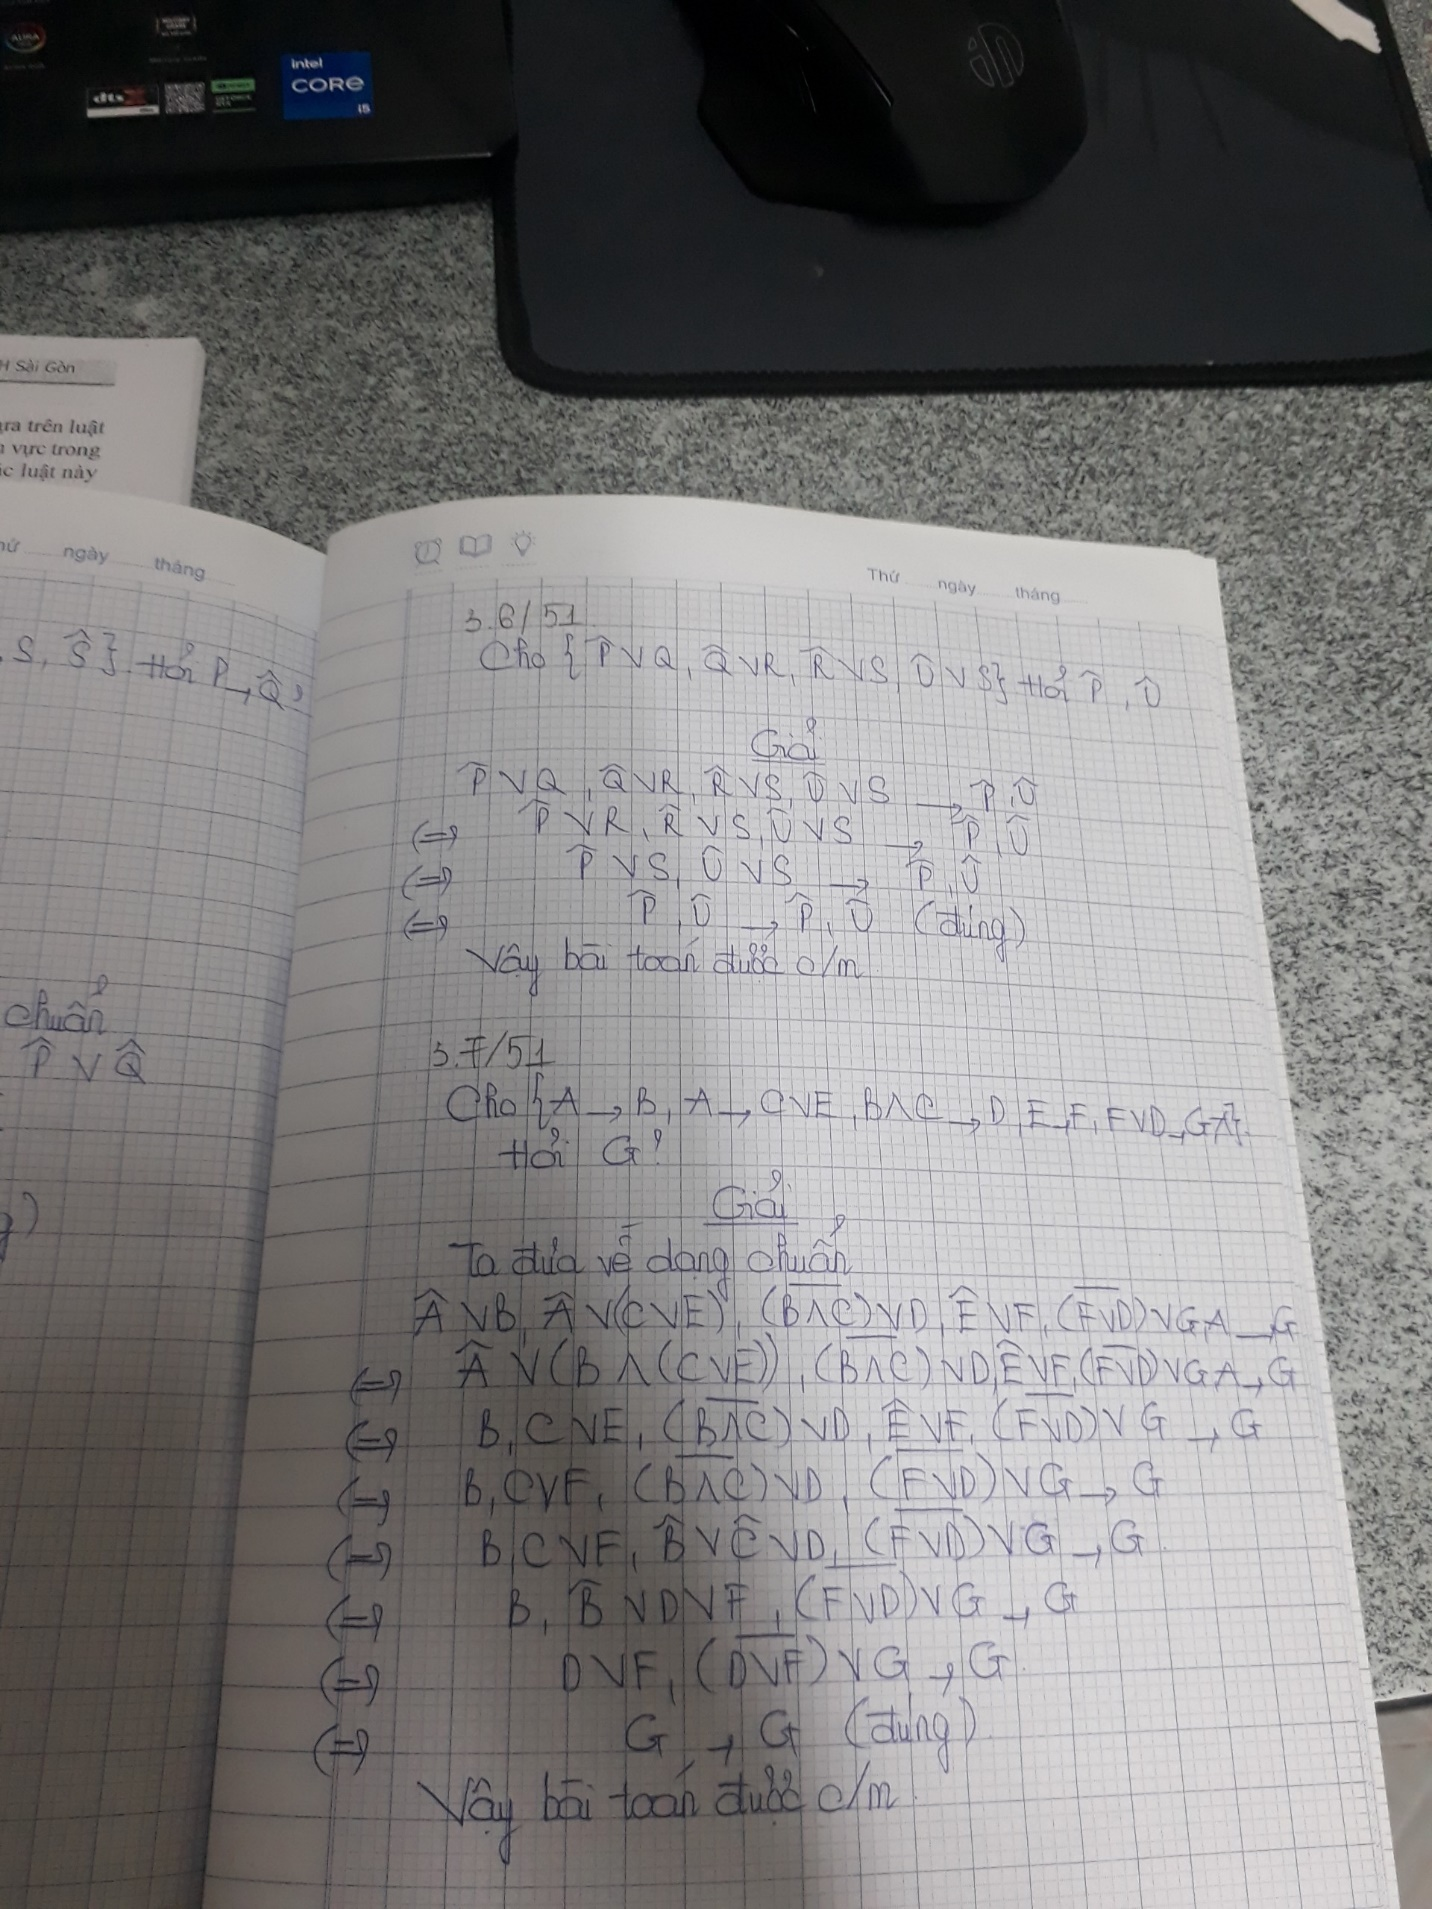 intel
CORE
i5
dts
H Sài Gòn
ựa trên luật
vực trong
ác luật này
ngày tháng
S, Ŝ} Hỏi P → Q̂
chuẩn
P̂ ∨ Q̂
Thứ ngày tháng
3.6/51
Cho {P̂ ∨ Q, Q̂ ∨ R, R̂ ∨ S, Û ∨ S} Hỏi P̂, Û
Giải
P̂ ∨ Q, Q̂ ∨ R, R̂ ∨ S, Û ∨ S → P̂, Û
(=) P̂ ∨ R, R̂ ∨ S, Û ∨ S → P̂, Û
(=) P̂ ∨ S, Û ∨ S → P̂, Û
(=) P̂, Û → P̂, Û (đúng)
Vậy bài toán được c/m
3.7/51
Cho {A → B, A → C∨E, B∧C → D, E→F, F∨D→G, A}.
Hỏi G?
Giải
Ta đưa về dạng chuẩn
Â ∨ B, Â ∨ (C∨E), (B̅∧̅C̅) ∨ D, Ê ∨ F, (F̅∨̅D̅) ∨ G, A → G
(=) Â ∨ (B ∧ (C∨E)), (B̅∧̅C̅) ∨ D, Ê ∨ F, (F̅∨̅D̅) ∨ G, A → G
(=) B, C∨E, (B̅∧̅C̅) ∨ D, Ê ∨ F, (F̅∨̅D̅) ∨ G → G
(=) B, C∨F, (B̅∧̅C̅) ∨ D, (F̅∨̅D̅) ∨ G → G
(=) B, C∨F, B̂ ∨ Ĉ ∨ D, (F̅∨̅D̅) ∨ G → G
(=) B, B̂ ∨ D ∨ F, (F̅∨̅D̅) ∨ G → G
(=) D∨F, (D̅∨̅F̅) ∨ G → G.
(=) G → G (đúng)
Vậy bài toán được c/m